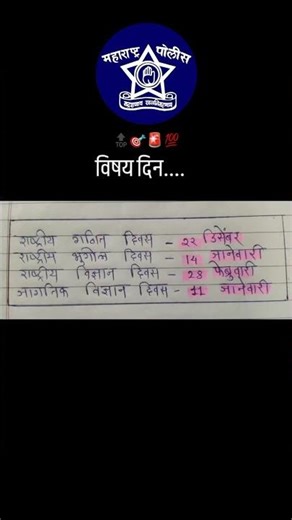 महाराष्ट्र पोलीस
सद्रक्षणाय खलनिग्रहणाय
TOP 100
विषय दिन....
राष्ट्रीय गणित दिवस - 22 डिसेंबर
राष्ट्रीय भूगोल दिवस - 14 जानेवारी
राष्ट्रीय विज्ञान दिवस - 28 फेब्रुवारी
जागतिक विज्ञान दिवस - 11 जानेवारी